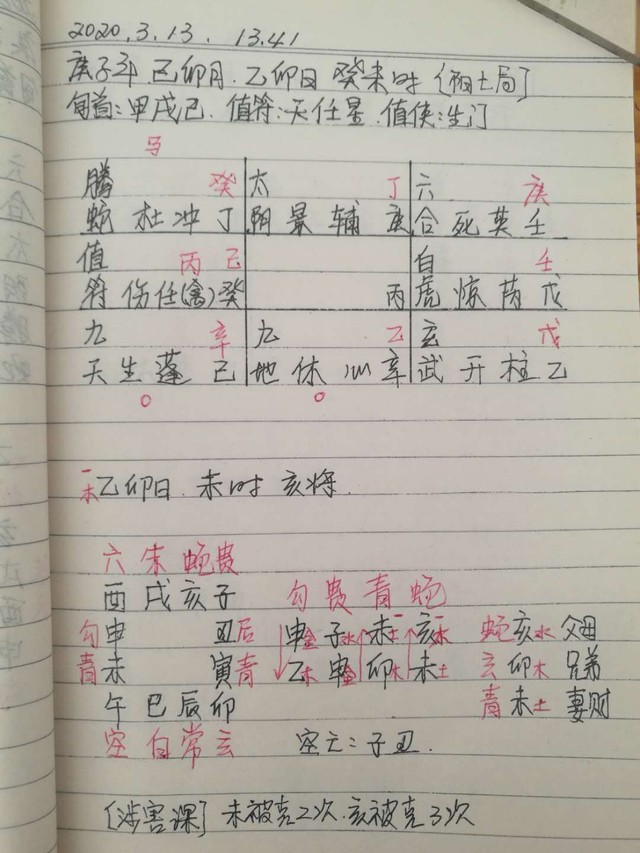 2020.3.13. 13.41
庚子年 己卯月.乙卯日 癸未时 [阳七局]
旬首:甲戌己. 值符:天任星.值使:生门
马
腾 癸 太 丁 六 庚
蛇 杜 冲 丁 阴 景 辅 庚 合 死 英 壬
值 丙 己 白 壬
符 伤 任(禽)癸 丙 虎 惊 芮 戊
九 辛 九 乙 玄 戊
天 生 蓬 己 地 休 心 辛 武 开 柱 乙
○ ○
一木 乙卯日. 未时 亥将.
六 朱 蛇 贵
酉 戌 亥 子 勾 贵 青 蛇
勾 申 丑 后 申金 子水 未土 亥水 蛇 亥 水 父母
青 未 寅 青 乙木 申金 卯木 未土 玄 卯 木 兄弟
午 巳 辰 卯 青 未 土 妻财
空 白 常 玄 空亡:子丑.
[涉害课] 未被克2次.亥被克3次